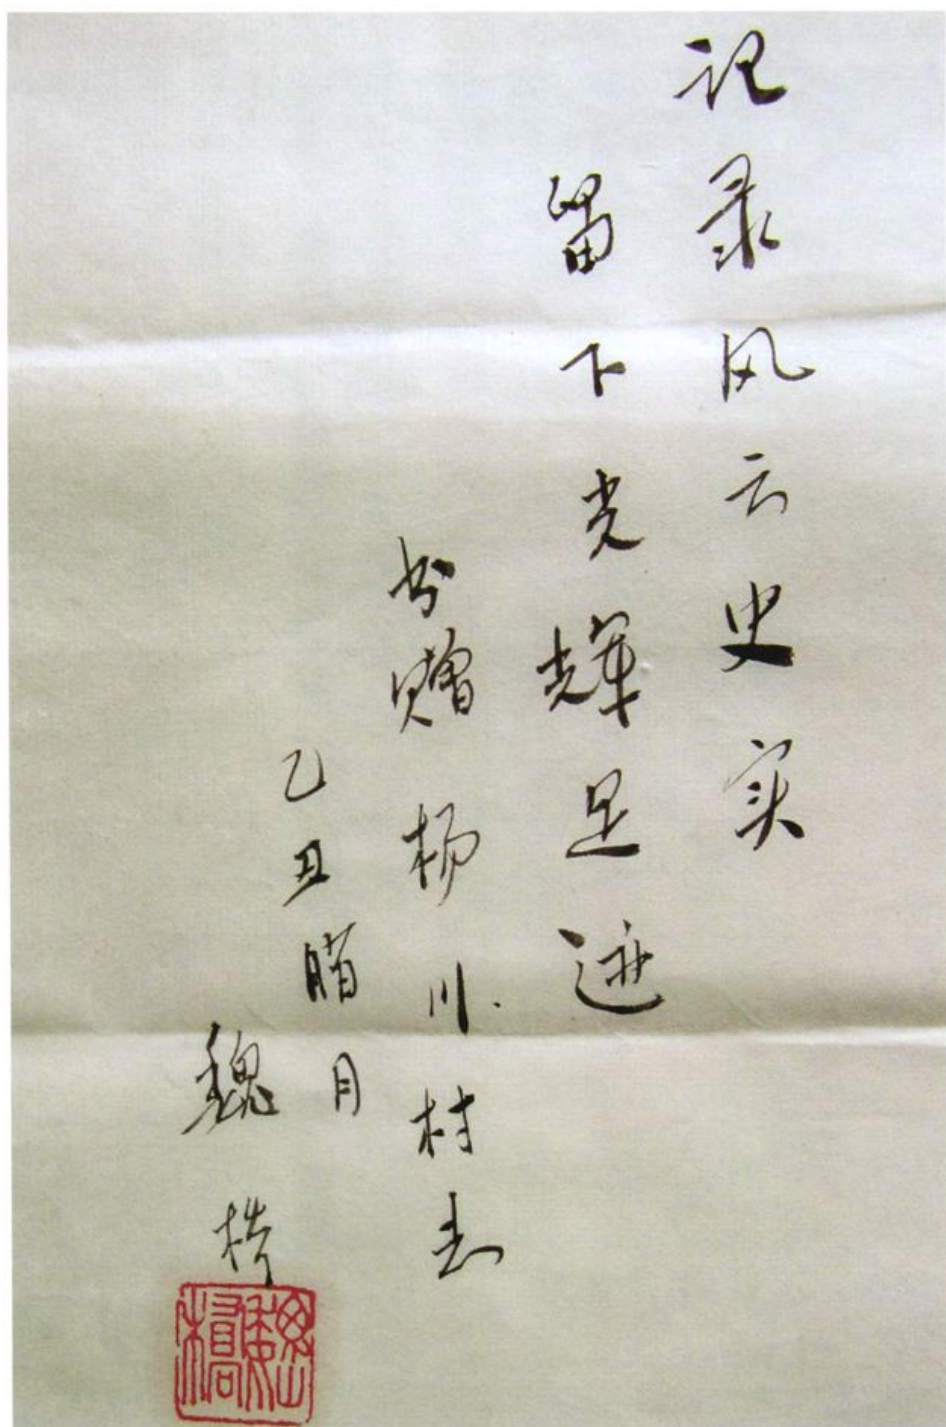 记录风云史实
留下光辉足迹
书赠杨川村志
乙丑腊月
魏桥
魏橋